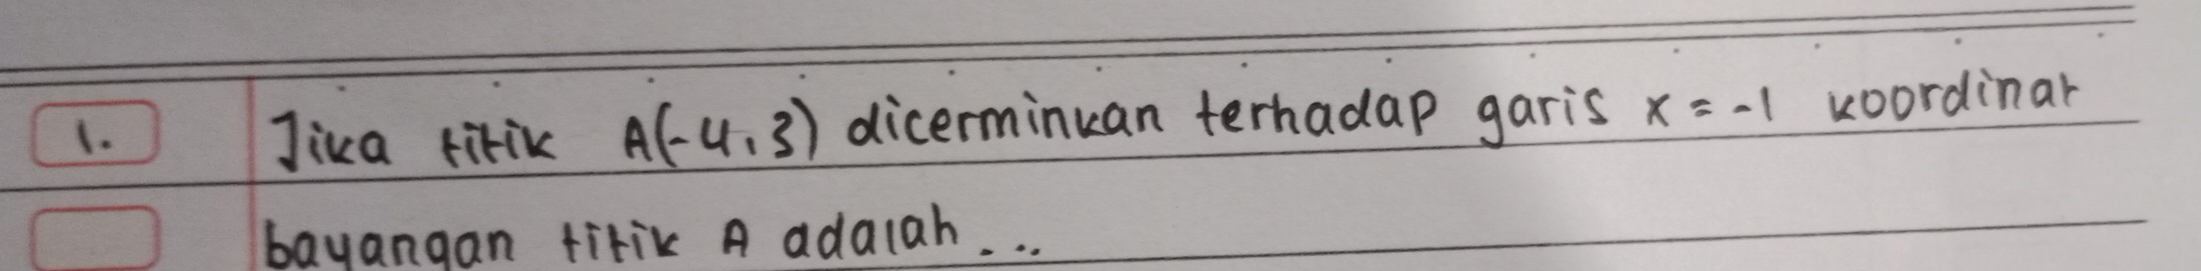 1. Jika titik A(-4,3) dicerminkan terhadap garis x = -1 koordinat
bayangan titik A adalah...